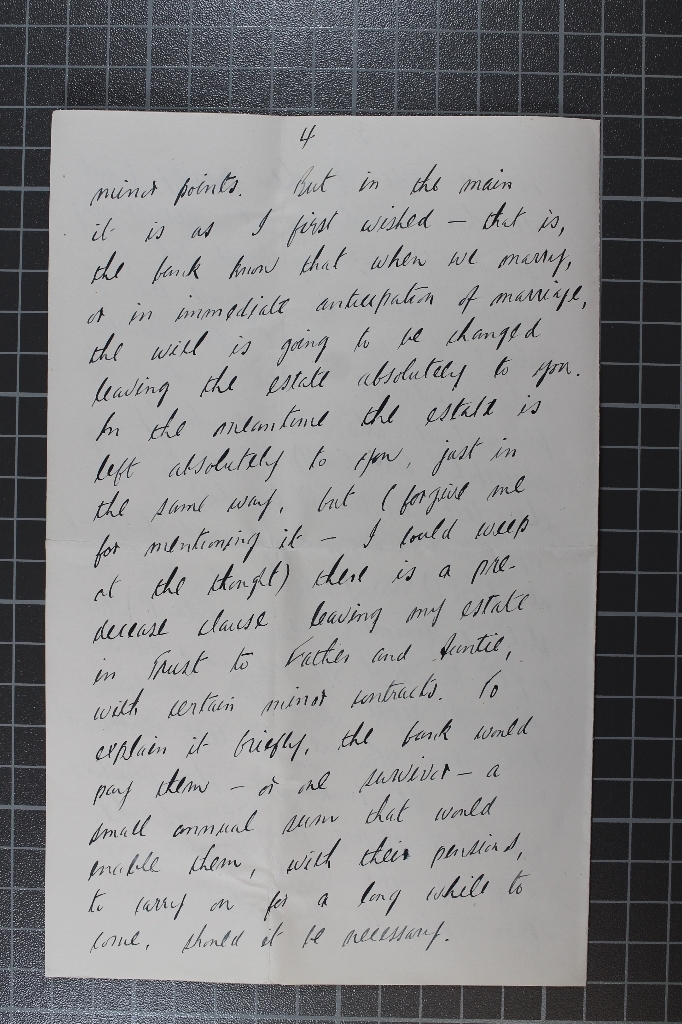 4
minor points. But in the main
it is as I first wished – that is,
the bank know that when we marry,
or in immediate anticipation of marriage,
the will is going to be changed
leaving the estate absolutely to you.
In the meantime the estate is
left absolutely to you, just in
the same way, but (forgive me
for mentioning it – I could weep
at the thought) there is a pre-
decease clause leaving my estate
in Trust to Father and Auntie,
with certain minor contracts. To
explain it briefly, the bank would
pay them – or one survivor – a
small annual sum that would
enable them, with their pensions,
to carry on for a long while to
come, should it be necessary.